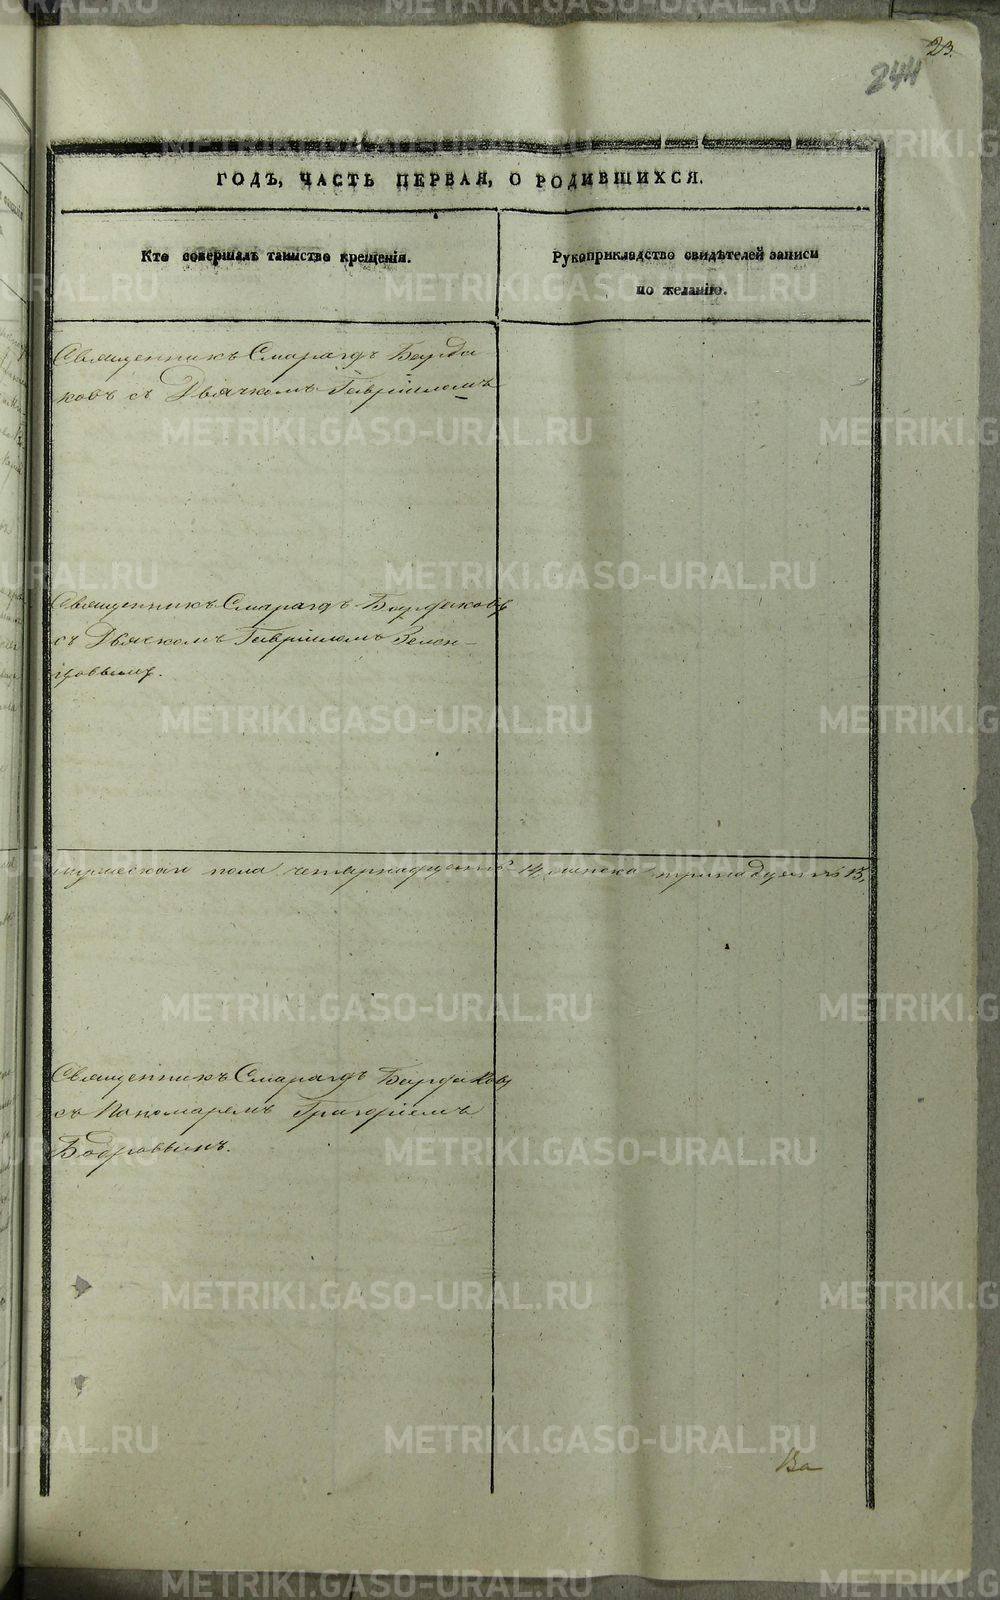 23.
244
ГОДЪ, ЧАСТЬ ПЕРВАЯ, О РОДИВШИХСЯ.
Кто совершалъ таинство крещенія.
Рукоприкладство свидѣтелей записи
по желанію.
Священникъ Смарагдъ Барда
ковъ съ Дьячкомъ Гавріиломъ
Священникъ Смарагдъ Бардаковъ
съ Дьячкомъ Гавріиломъ Зелен-
цовымъ.
мужескаго пола четырнадцать 14, женска тринадцать 13,
Священникъ Смарагдъ Бардаковъ
съ Пономаремъ Григоріемъ
Ва
METRIKI.GASO-URAL.RU